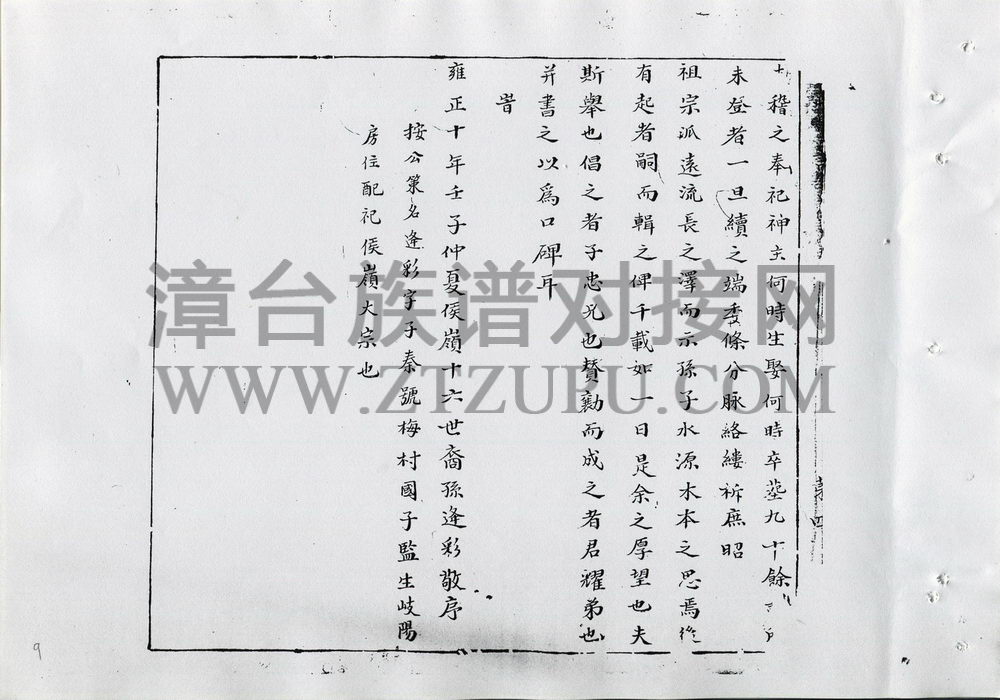 稽之奉祀神主何時生娶何時卒塟九十餘
未登者一旦續之端委條分脉絡縷析庶昭
祖宗派遠流長之澤而示孫子水源木本之思焉後
有起者嗣而輯之俾千載如一日是余之厚望也夫
斯舉也倡之者子忠兄也賛勷而成之者君耀弟也
并書之以爲口碑耳
旹
雍正十年壬子仲夏侯嶺十六世裔孫逢彩敬序
按公策名逢彩字子泰號梅村國子監生岐陽
房住配祀侯嶺大宗也
漳台族谱对接网
WWW.ZTZUPU.COM
9